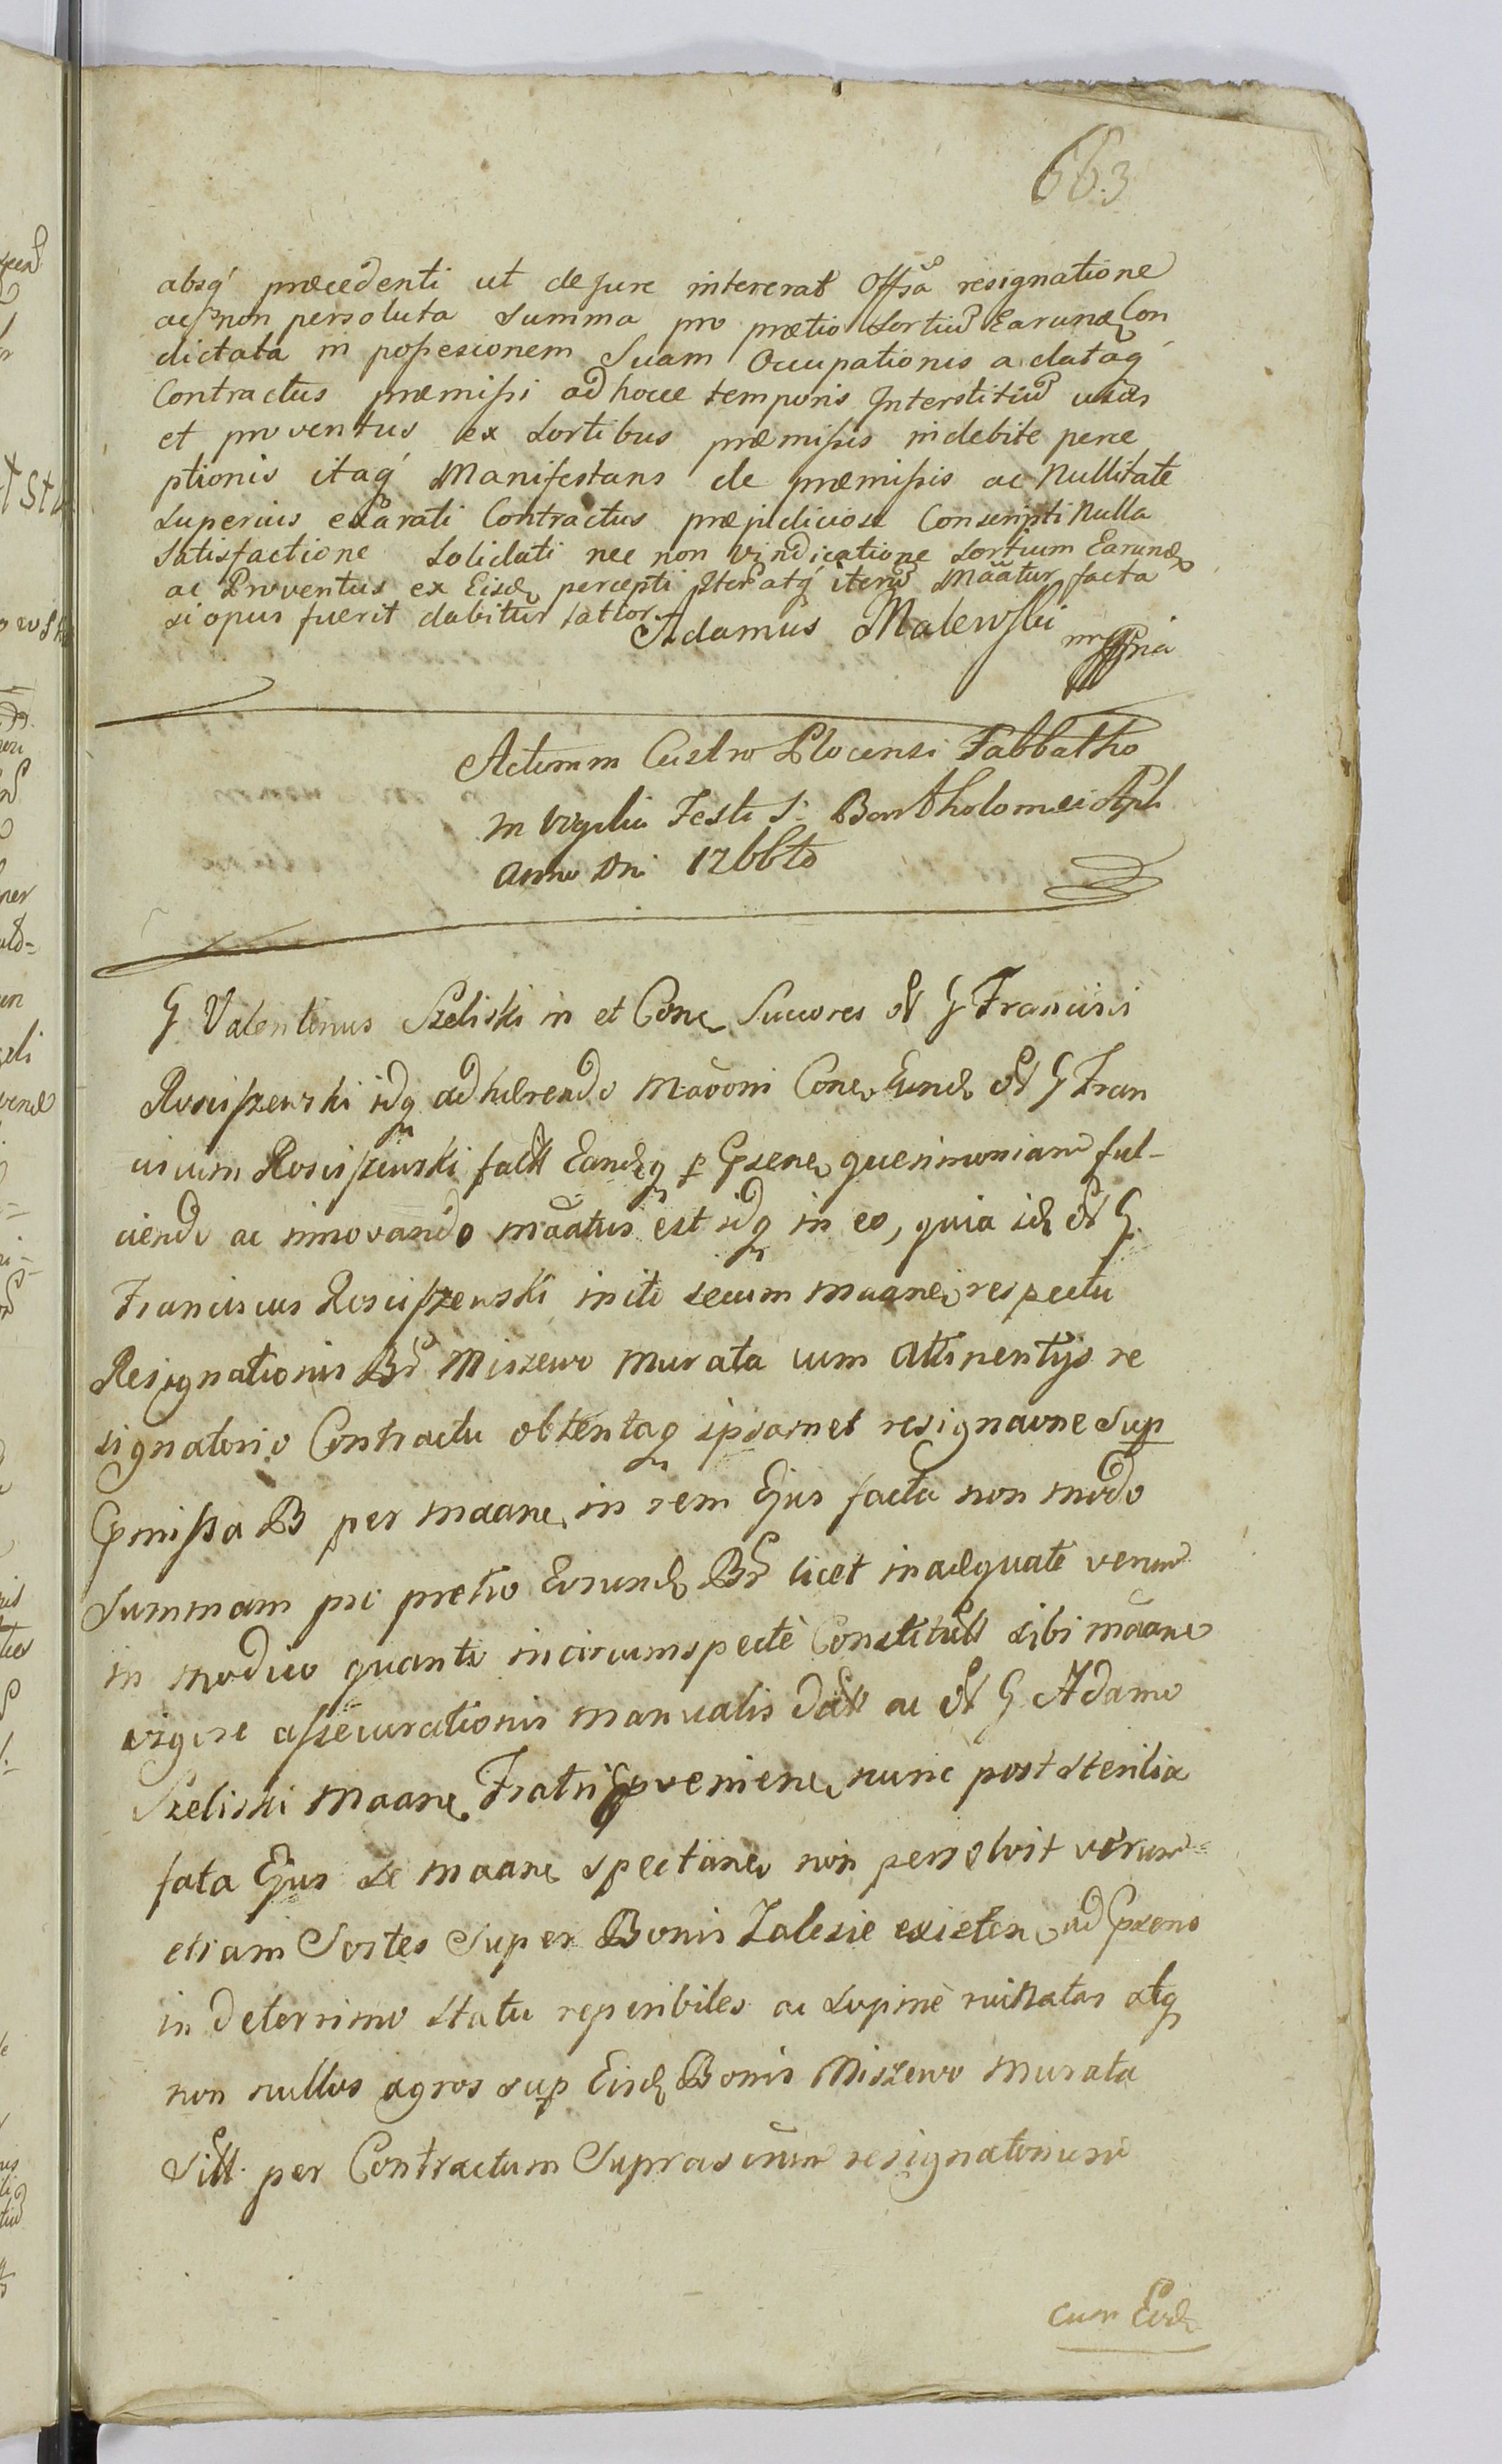 663
absq́ præcedenti ut de jure intererat Offsã resignatione
ac non persoluta Summa pro prætio Sortiu Earund Con
dictata in poßesionem Suam Occupationis a dataq́
Contractus præmißi ad hocce temporis Interstitiu
et proventus ex Sortibus præmißis indebite perce
ptionis itaq́ Manifestans de præmißis ac Nullitate
Superius exarati Contractus præjudiciose Conscripti Nulla
Satisfactione Solidati nec non vindicatione Sortium Earund
ac Proventus ex Eisd percepti Iter atq́ iteru Maãtur facta
si opus fuerit dabitur latior
Adamus Malewski mppria
Actum in Castro Plocensi Sabbatho
in Vigilia Festi S: Bartholomei Apli
Anno Dni 1766to
G Valentinus Szeliski in et Conc Succores G Francisci
Rosciszewski idq adhærendo Maõoni Conc Eund G Fran
ciscum Rosciszewski fact Eandq p Gsenc querimoniam ful-
ciendo ac innovando mãatus est idq in eo, quia id G.
Franciscus Rosciszewski inito secum maane respectu
Resignationis Br Miszewo Murata cum Attinentijs re
signatorio Contractu obtentaq ipsamet resignaone Sup
Gmißa B per maanc in rem Ejus facta non modo
Summam pro pretio Eorund Br licet inadequate verum
in modico quanto incircumspecte Constitutt sibi mãanc
vigore aßecurationis manualis datt ac G Adamo
Szeliski Maanc Fratri proveniene nunc post sterilia
fata Ejus se maanc spectane non persolvit verum
etiam Sortes Super Bonis Zalesie existen ad Gsens
in deterrimo statu reperibiles ac supine ruinatas atq
non nullos agros sup Eisd Bonis Miszewo Murata
Sitt. per Contractum Suprascrium resignatorium
cum Eod